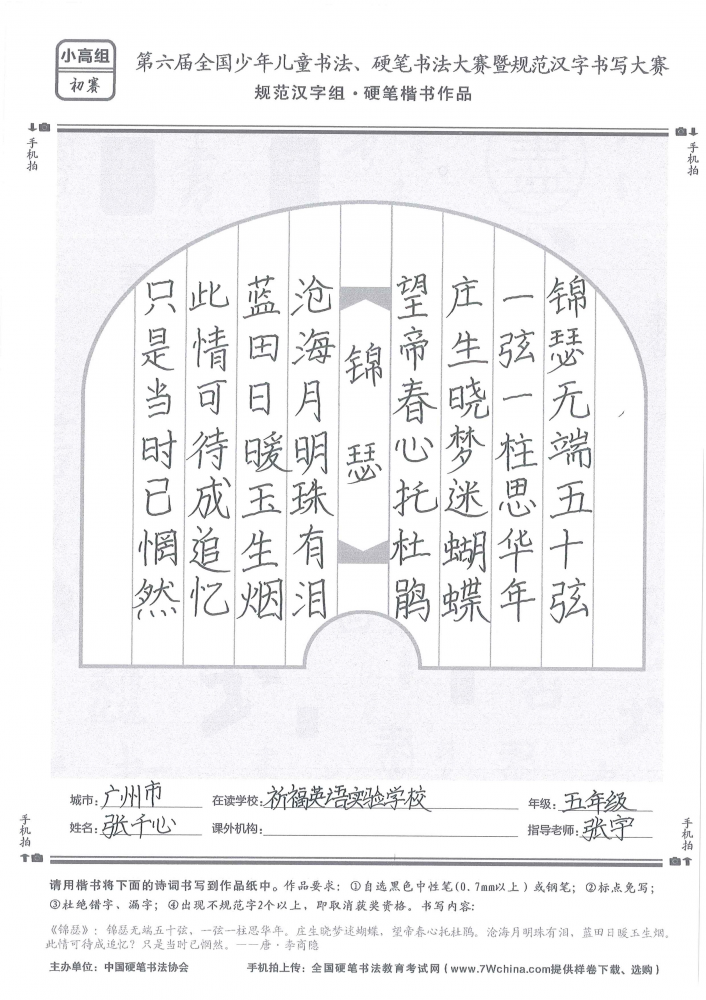 小高组
初赛
第六届全国少年儿童书法、硬笔书法大赛暨规范汉字书写大赛
规范汉字组·硬笔楷书作品
手机拍
手机拍
锦瑟无端五十弦
一弦一柱思华年
庄生晓梦迷蝴蝶
望帝春心托杜鹃
锦瑟
沧海月明珠有泪
蓝田日暖玉生烟
此情可待成追忆
只是当时已惘然
城市：广州市 在读学校：祈福英语实验学校 年级：五年级
姓名：张千心 课外机构： 指导老师：张宇
手机拍
手机拍
请用楷书将下面的诗词书写到作品纸中。作品要求：①自选黑色中性笔(0.7mm以上)或钢笔；②标点免写；
③杜绝错字、漏字；④出现不规范字2个以上，即取消获奖资格。书写内容：
《锦瑟》：锦瑟无端五十弦、一弦一柱思华年。庄生晓梦迷蝴蝶，望帝春心托杜鹃。沧海月明珠有泪，蓝田日暖玉生烟。
此情可待成追忆？只是当时已惘然。——唐·李商隐
主办单位：中国硬笔书法协会 手机拍上传：全国硬笔书法教育考试网（www.7Wchina.com提供样卷下载、选购）